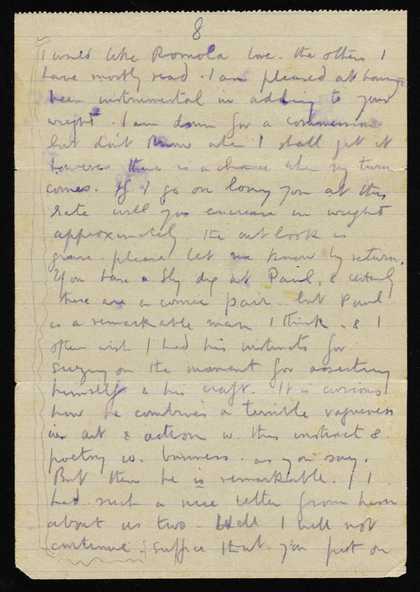 8
I would like Romola love. the others I
have mostly read. I am pleased at having
been instrumental in adding to your
weight. I am down for a commission
but don't know when I shall get it
however there is a chance when my turn
comes. If I go on loving you at this
rate will you increase in weight
approximately the outlook is
grave. please let me know by return.
You have a sly dig at Paul, & certainly
there are a comic pair. but Paul
is a remarkable man I think. & I
often wish I had his instincts for
seizing on the moment for asserting
himself & his craft. It is curious
how he combines a terrible vagueness
in art & action w. this instinct &
poetry w. business. as you say.
But then he is remarkable. I
had such a nice letter from him
about us two. Well I will not
continue. suffice that you put on